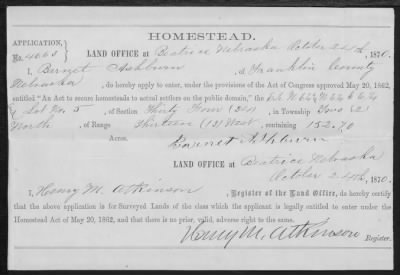 HOMESTEAD.
APPLICATION,
No. 4663
LAND OFFICE at Beatrice Nebraska October 24th, 1870.
I, Barnet Ashburn, of Franklin County
Nebraska, do hereby apply to enter, under the provisions of the Act of Congress approved May 20, 1862,
entitled "An Act to secure homesteads to actual settlers on the public domain," the
& Lot No. 5 of Section Thirty Four (34), in Township Two (2)
North, of Range Thirteen (13) West, containing 152.70
Acres.
Barnet Ashburn
LAND OFFICE at Beatrice Nebraska
October 24th, 1870.
I, Henry M. Atkinson, Register of the Land Office, do hereby certify
that the above application is for Surveyed Lands of the class which the applicant is legally entitled to enter under the
Homestead Act of May 20, 1862, and that there is no prior, valid, adverse right to the same.
Henry M. Atkinson
Register.